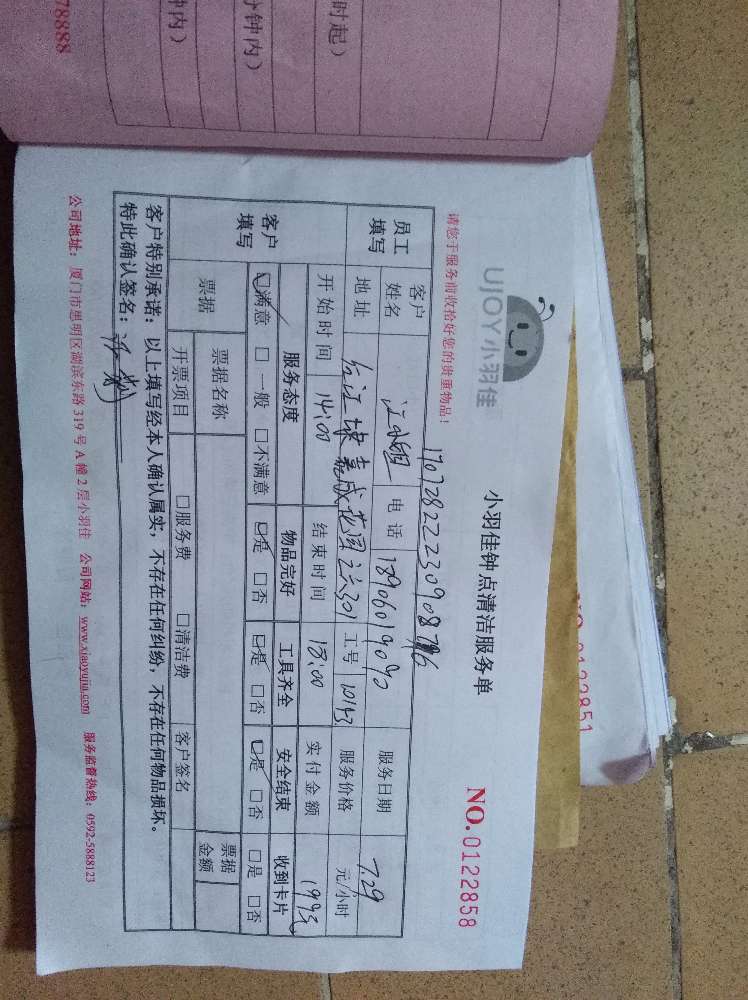 时起)
分钟内)
钟内)
78888
NO.0122851
UJOY小羽佳
小羽佳钟点清洁服务单
NO.0122858
请您于服务前收拾好您的贵重物品!
员工填写
客户姓名
江小姐
电话
18906019090
服务日期
7.29
地址
嘉盛花园
301
工号
10143
服务价格
元/小时
开始时间
14:00
结束时间
18:00
实付金额
客户填写
服务态度
物品完好
工具齐全
安全结束
收到卡片
☑满意 □一般 □不满意
☑是 □否
☑是 □否
☑是 □否
□是 □否
票据
票据名称
票据金额
开票项目
□服务费 □清洁费
客户签名
客户特别承诺:以上填写经本人确认属实,不存在任何纠纷,不存在任何物品损坏。
特此确认签名:
公司地址:厦门市思明区湖滨东路319号A幢2层小羽佳 公司网站:www.xiaoyujia.com 服务监督热线:0592-5888123